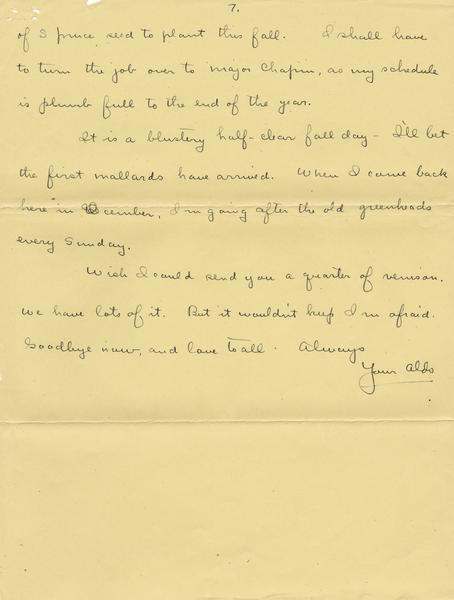 7.
of Spruce seed to plant this fall. I shall have
to turn the job over to Major Chapin, as my schedule
is plumb full to the end of the year.
It is a blustery half-clear fall day - I'll bet
the first mallards have arrived. When I come back
here in December, I'm going after the old greenheads
every Sunday.
Wish I could send you a quarter of venison.
We have lots of it. But it wouldn't keep I'm afraid.
Goodbye now, and love to all. Always
Your Aldo